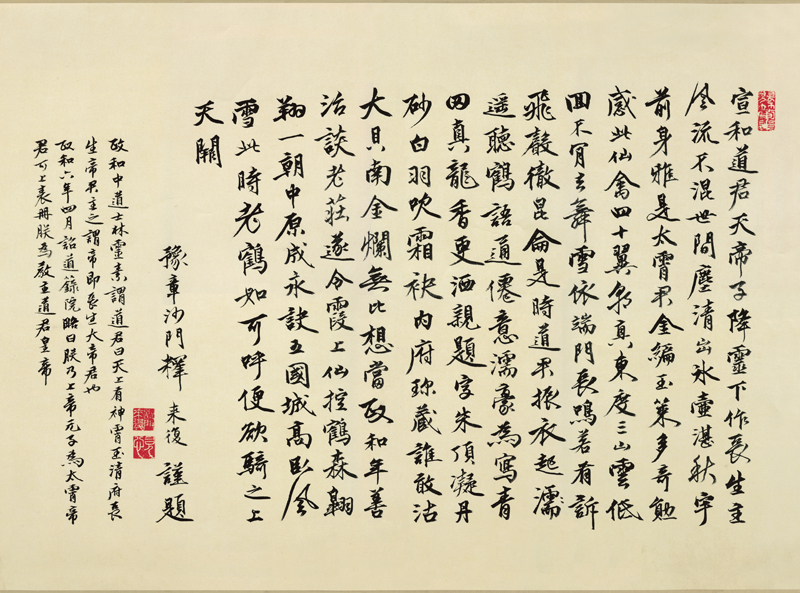 宣和道君天帝子降靈下作長生主
風流不混世間塵清出冰壺湛秋宇
前身雅是太霄君金編玉策多奇勳
感此仙禽四十翼朝真東度三山雲低
回不肯去舞雪依端門長鳴若有訴
飛聲徹昆侖是時道君振衣起濡
遥聽鶴語通僊意濡豪為寫青
田真龍香更洒親題字朱頂凝丹
砂白羽吹霜袂內府珎藏誰敢沽
大貝南金爛無比想當政和年善
治談老莊遂令霞上仙控鶴森翱
翔一朝中原成永訣五國城高臥風
雪此時老鶴如可呼便欲騎之上
天闕
豫章沙門釋 来復 謹題
政和中道士林靈素謂道君曰天上有神霄玉清府長
生帝君主之謂帝即長生大帝君也
政和六年四月詔道錄院略曰朕乃上帝元子為太霄帝
君可上表冊朕為教主道君皇帝